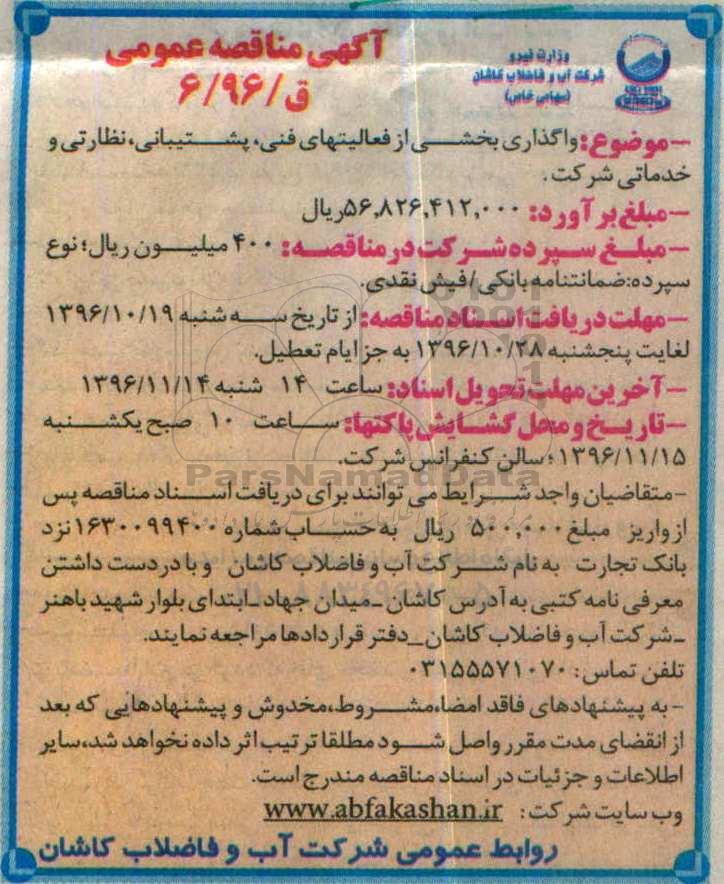 آگهی مناقصه عمومی
ق/۶/۹۶
وزارت نیرو
شرکت آب و فاضلاب کاشان
(سهامی خاص)
-موضوع: واگذاری بخشی از فعالیتهای فنی، پشتیبانی، نظارتی و
خدماتی شرکت.
-مبلغ برآورد: ۵۶,۸۲۶,۴۱۲,۰۰۰ ریال
-مبلغ سپرده شرکت در مناقصه: ۴۰۰ میلیون ریال؛ نوع
سپرده: ضمانتنامه بانکی/فیش نقدی.
-مهلت دریافت اسناد مناقصه: از تاریخ سه شنبه ۱۳۹۶/۱۰/۱۹
لغایت پنجشنبه ۱۳۹۶/۱۰/۲۸ به جز ایام تعطیل.
-آخرین مهلت تحویل اسناد: ساعت ۱۴ شنبه ۱۳۹۶/۱۱/۱۴
-تاریخ و محل گشایش پاکتها: ساعت ۱۰ صبح یکشنبه
۱۳۹۶/۱۱/۱۵؛ سالن کنفرانس شرکت.
ParsNamadData
-متقاضیان واجد شرایط می توانند برای دریافت اسناد مناقصه پس
از واریز مبلغ ۵۰۰,۰۰۰ ریال به حساب شماره ۱۶۳۰۰۹۹۴۰۰ نزد
بانک تجارت به نام شرکت آب و فاضلاب کاشان و با در دست داشتن
معرفی نامه کتبی به آدرس کاشان_میدان جهاد_ابتدای بلوار شهید باهنر
_شرکت آب و فاضلاب کاشان_دفتر قراردادها مراجعه نمایند.
تلفن تماس: ۰۳۱۵۵۵۷۱۰۷۰
-به پیشنهادهای فاقد امضا، مشروط، مخدوش و پیشنهادهایی که بعد
از انقضای مدت مقرر واصل شود مطلقا ترتیب اثر داده نخواهد شد، سایر
اطلاعات و جزئیات در اسناد مناقصه مندرج است.
وب سایت شرکت: www.abfakashan.ir
روابط عمومی شرکت آب و فاضلاب کاشان